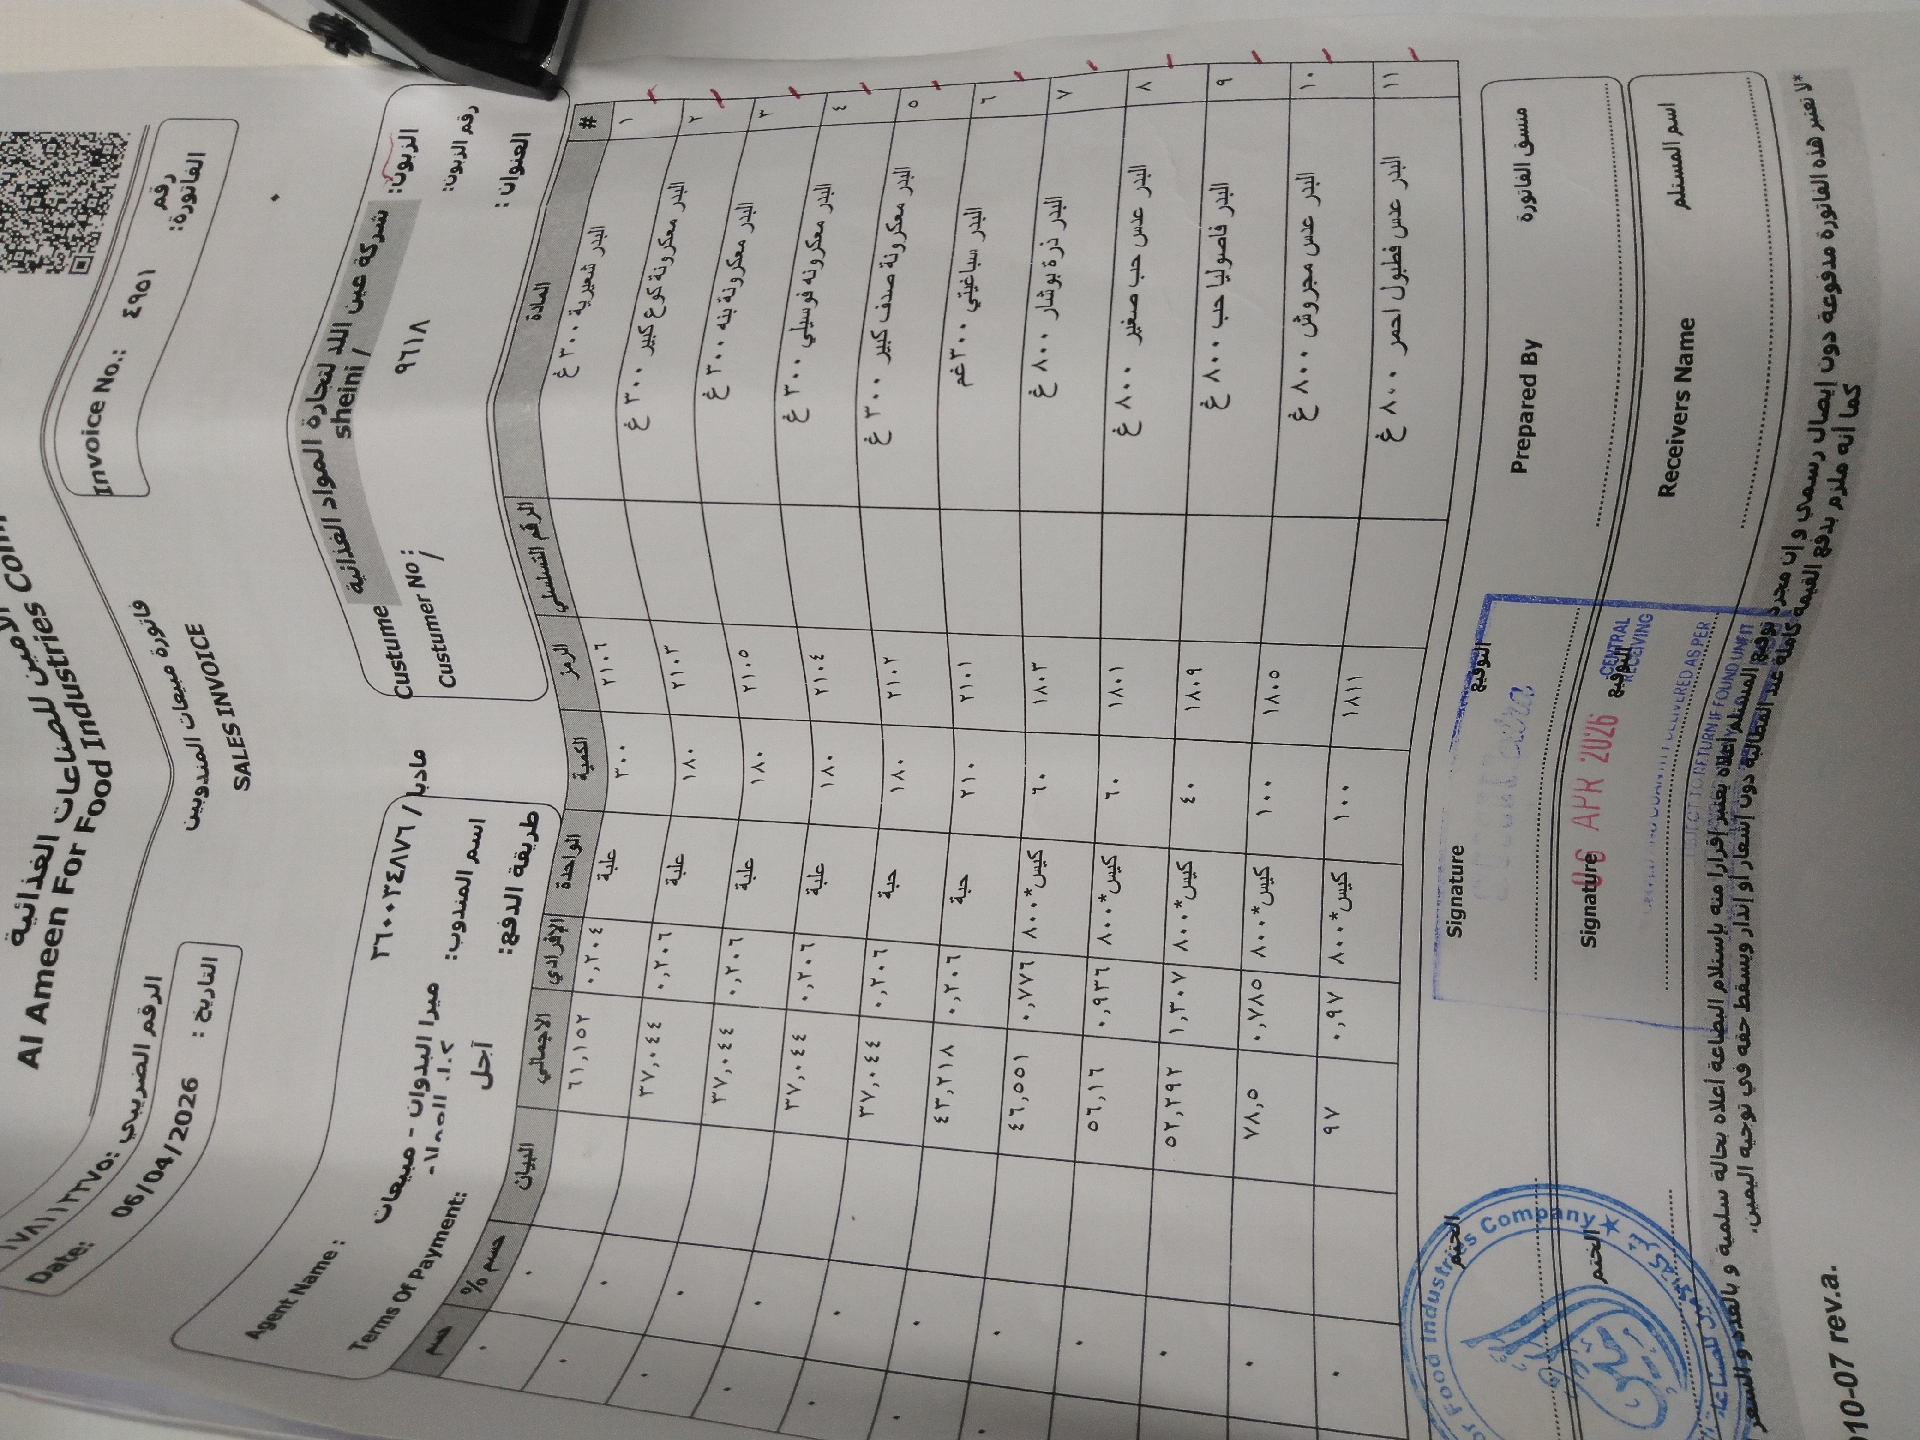 الأمين للصناعات الغذائية
Al Ameen For Food Industries
الرقم الضريبي:
رقم الفاتورة: ٤٩٥١ Invoice No.:
فاتورة مبيعات المندوبين
SALES INVOICE
Date: 06/04/2026 التاريخ :
الزبون: شركة عين اللد لتجارة المواد الغذائية / sheini Custume
رقم الزبون: ٩٦١٨ Custumer No :
العنوان : / مادبا / ٣٦٠٠٣٤٨٧٦
Agent Name : ميرا البدوان - مبيعات اسم المندوب:
Terms Of Payment: آجل طريقة الدفع:
# المادة الرقم التسلسلي الرمز الكمية الواحدة الإفرادي الاجمالي البيان حسم % حسم
١ البدر شعيرية ٣٠٠ غ ٢١٠٦ ٣٠٠ علبة ٠,٢٠٤ ٦١,١٥٢ ٠ ٠
٢ البدر معكرونة كوع كبير ٣٠٠ غ ٢١٠٣ ١٨٠ علبة ٠,٢٠٦ ٣٧,٠٤٤ ٠ ٠
٣ البدر معكرونة بنه ٣٠٠ غ ٢١٠٥ ١٨٠ علبة ٠,٢٠٦ ٣٧,٠٤٤ ٠ ٠
٤ البدر معكرونه فوسيلي ٣٠٠ غ ٢١٠٤ ١٨٠ علبة ٠,٢٠٦ ٣٧,٠٤٤ ٠ ٠
٥ البدر معكرونة صدف كبير ٣٠٠ غ ٢١٠٢ ١٨٠ حبة ٠,٢٠٦ ٣٧,٠٤٤ ٠ ٠
٦ البدر سباغيتي ٣٠٠غم ٢١٠١ ٢١٠ حبة ٠,٢٠٦ ٤٣,٢١٨ ٠ ٠
٧ البدر ذرة بوشار ٨٠٠ غ ١٨٠٣ ٦٠ كيس*٨٠٠ ٠,٧٧٦ ٤٦,٥٥١ ٠ ٠
٨ البدر عدس حب صغير ٨٠٠ غ ١٨٠١ ٦٠ كيس*٨٠٠ ٠,٩٣٦ ٥٦,١٦ ٠
٩ البدر فاصوليا حب ٨٠٠ غ ١٨٠٩ ٤٠ كيس*٨٠٠ ١,٣٠٧ ٥٢,٢٩٢ ٠
١٠ البدر عدس مجروش ٨٠٠ غ ١٨٠٥ ١٠٠ كيس*٨٠٠ ٠,٧٨٥ ٧٨,٥ ٠
١١ البدر عدس فطبول احمر ٨٠٠ غ ١٨١١ ١٠٠ كيس*٨٠٠ ٠,٩٧ ٩٧ ٠
منسق الفاتورة Prepared By التوقيع Signature الختم
اسم المستلم Receivers Name التوقيع Signature الختم
CENTRAL RECEIVING
06 APR 2026
QUANTITY DELIVERED AS PER
SUBJECT TO RETURN IF FOUND UNFIT
For Food Industries Company
*لا تعتبر هذه الفاتورة مدفوعة دون إيصال رسمي و إن مجرد توقيع المستلم أعلاه يعتبر إقرارا منه بإستلام البضاعة أعلاه بحالة سلمية و بالعدد و السعر
كما أنه ملزم بدفع القيمة كاملة عند المطالبة دون إشعار أو إنذار ويسقط حقه في توجيه اليمين.
10-07 rev.a.